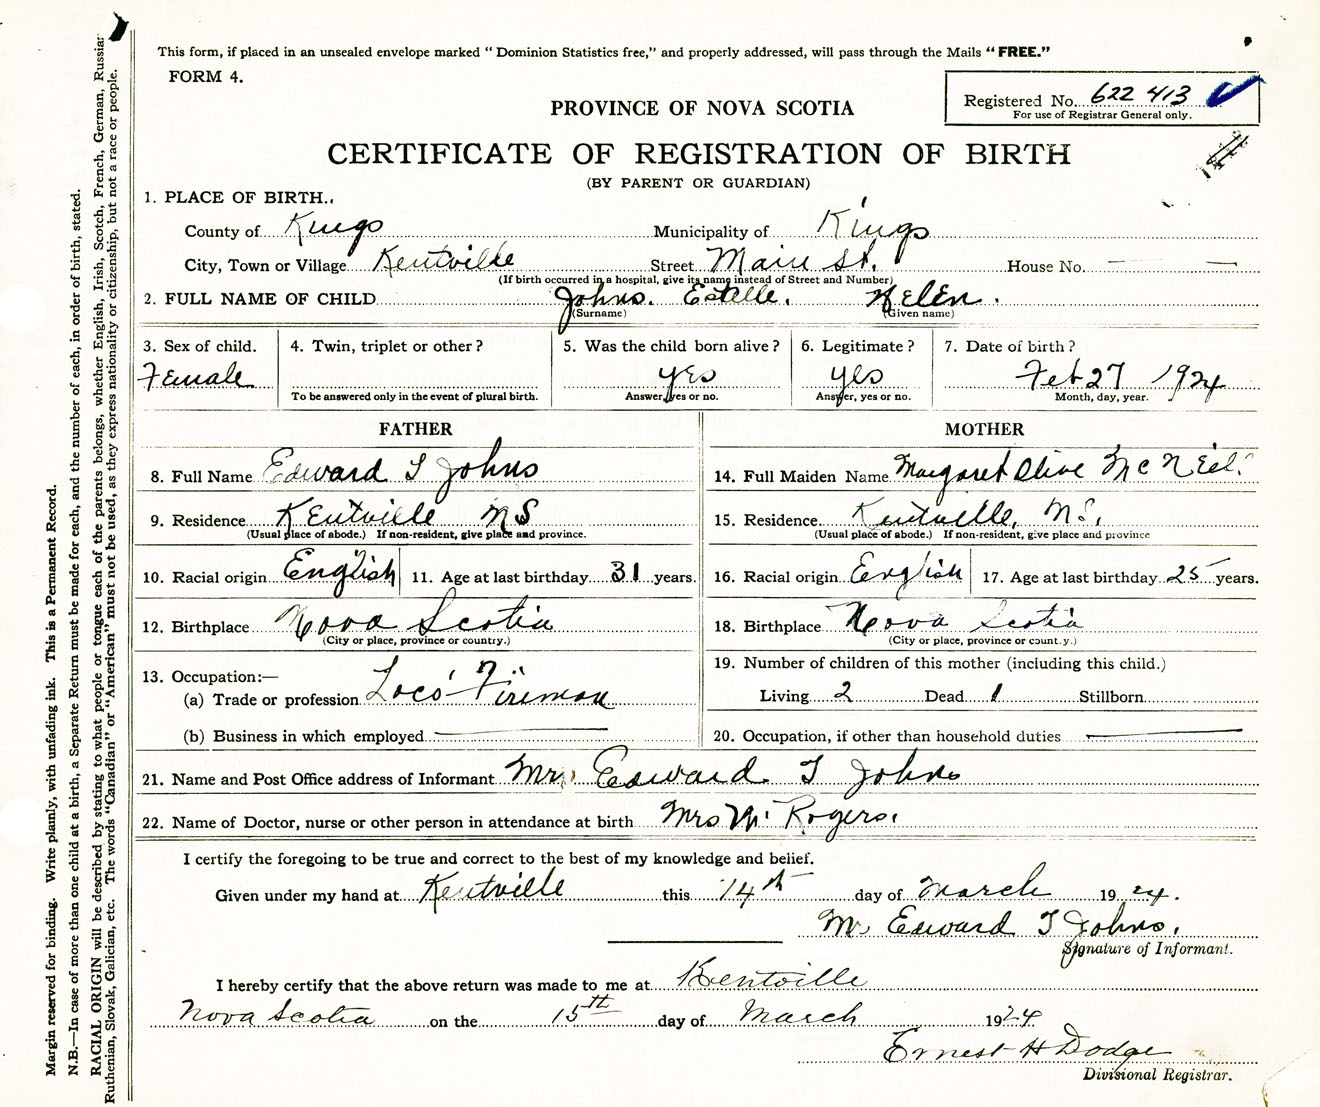 This form, if placed in an unsealed envelope marked “ Dominion Statistics free,” and properly addressed, will pass through the Mails “ FREE.”
FORM 4.
Registered No. 622 413
For use of Registrar General only.
PROVINCE OF NOVA SCOTIA
CERTIFICATE OF REGISTRATION OF BIRTH
(BY PARENT OR GUARDIAN)
1. PLACE OF BIRTH..
County of Kings Municipality of Kings
City, Town or Village Kentville Street Main St. House No.
(If birth occurred in a hospital, give its name instead of Street and Number)
2. FULL NAME OF CHILD Johns. Estelle. Helen.
(Surname) (Given name)
3. Sex of child. 4. Twin, triplet or other ? 5. Was the child born alive ? 6. Legitimate ? 7. Date of birth ?
Female yes yes Feb 27 1924
To be answered only in the event of plural birth. Answer, yes or no. Answer, yes or no. Month, day, year.
FATHER MOTHER
8. Full Name Edward T Johns 14. Full Maiden Name Margaret Olive McNeil.
9. Residence Kentville NS 15. Residence Kentville, NS.
(Usual place of abode.) If non-resident, give place and province. (Usual place of abode.) If non-resident, give place and province
10. Racial origin English 11. Age at last birthday 31 years. 16. Racial origin English 17. Age at last birthday 25 years.
12. Birthplace Nova Scotia 18. Birthplace Nova Scotia
(City or place, province or country.) (City or place, province or country.)
13. Occupation:— 19. Number of children of this mother (including this child.)
(a) Trade or profession Loco Fireman Living 2 Dead 1 Stillborn
(b) Business in which employed 20. Occupation, if other than household duties
21. Name and Post Office address of Informant Mr. Edward T Johns
22. Name of Doctor, nurse or other person in attendance at birth Mrs Rogers.
I certify the foregoing to be true and correct to the best of my knowledge and belief.
Given under my hand at Kentville this 14th day of March 1924.
Mr Edward T Johns.
Signature of Informant.
I hereby certify that the above return was made to me at Kentville
Nova Scotia on the 15th day of March 1924
Ernest H Dodge
Divisional Registrar.
Margin reserved for binding. Write plainly, with unfading ink. This is a Permanent Record.
N.B.—In case of more than one child at a birth, a Separate Return must be made for each, and the number of each, in order of birth, stated.
RACIAL ORIGIN will be described by stating to what people or tongue each of the parents belongs, whether English, Irish, Scotch, French, German, Russian
Ruthenian, Slovak, Galician, etc. The words “Canadian” or “American” must not be used, as they express nationality or citizenship, but not a race or people.